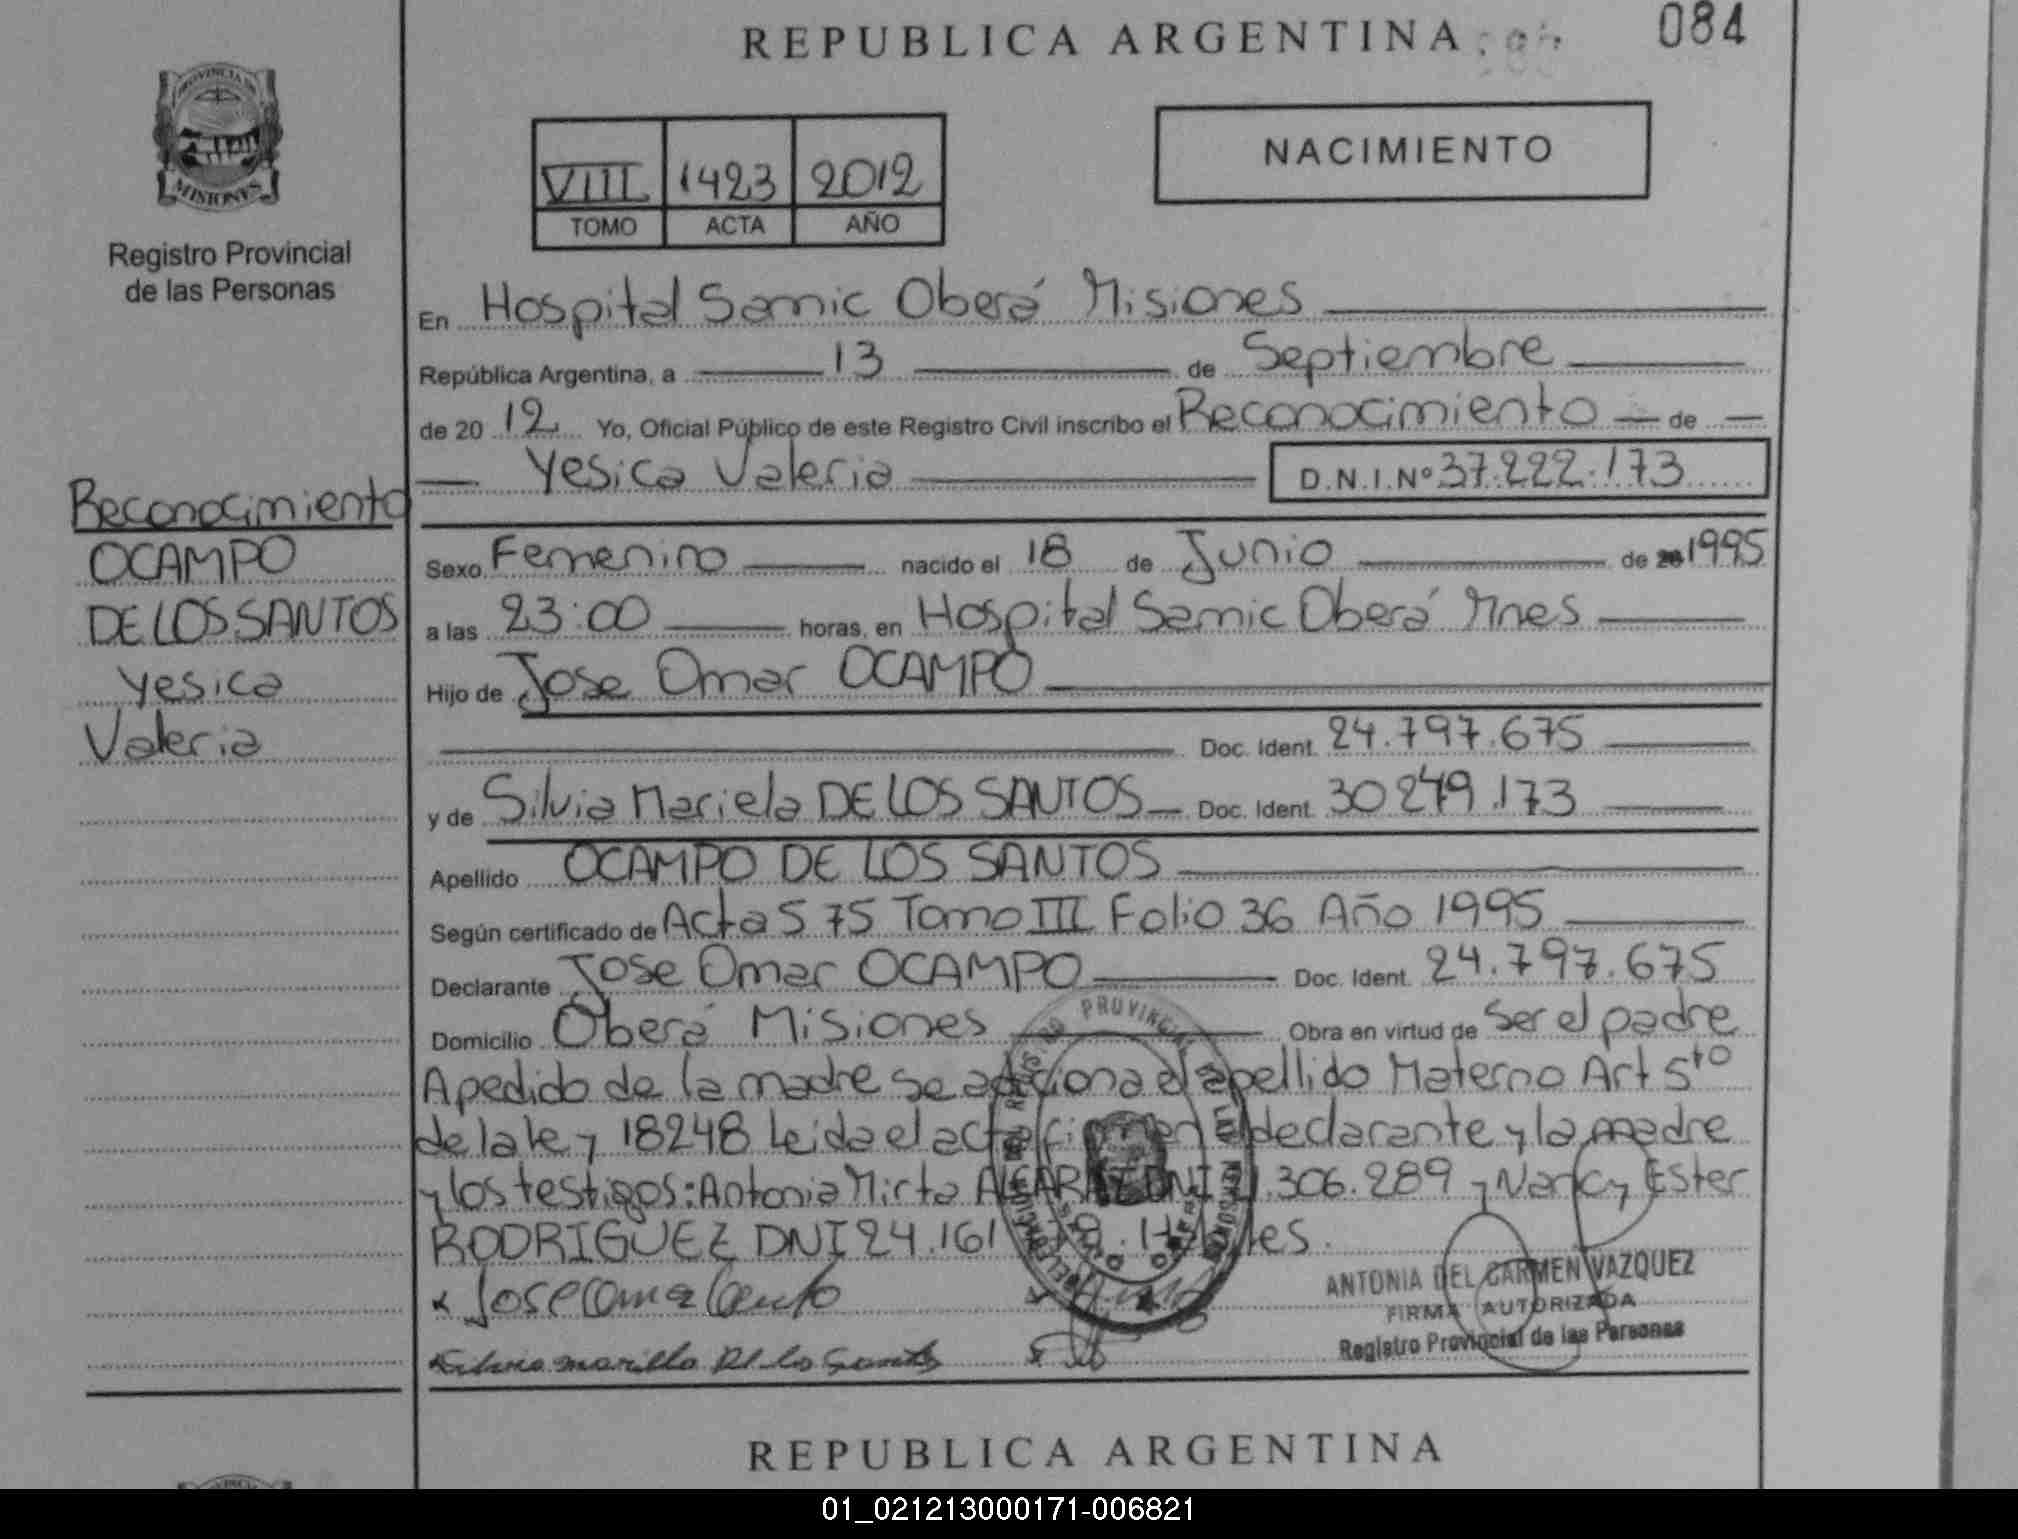 REPUBLICA ARGENTINA
084
PROVINCIA DE
MISIONES
Registro Provincial
de las Personas
VIII 1423 2012
TOMO ACTA AÑO
NACIMIENTO
En Hospital Samic Oberá Misiones
República Argentina, a 13 de Septiembre
de 20 12 Yo, Oficial Público de este Registro Civil inscribo el Reconocimiento de
Yesica Valeria D.N.I. Nº 37.222.173
Reconocimiento
OCAMPO
DE LOS SANTOS
Yesica
Valeria
Sexo Femenino nacido el 18 de Junio de 20 1995
a las 23:00 horas, en Hospital Samic Oberá Mnes
Hijo de Jose Omar OCAMPO
Doc. Ident. 24.797.675
y de Silvia Mariela DE LOS SANTOS Doc. Ident. 30249.173
Apellido OCAMPO DE LOS SANTOS
Según certificado de Acta 575 Tomo III Folio 36 Año 1995
Declarante Jose Omar OCAMPO Doc. Ident. 24.797.675
Domicilio Oberá Misiones Obra en virtud de Ser el padre
Apedido de la madre se adiciona el apellido Materno Art 5to
de la ley 18248 Leida el acta firman el declarante y la madre
y los testigos: Antonia Mirta DNI 306.289 y Nancy Ester
RODRIGUEZ DNI 24.161
Jose Omar
De los Santos
ANTONIA DEL CARMEN VAZQUEZ
FIRMA AUTORIZADA
Registro Provincial de las Personas
REPUBLICA ARGENTINA
01_021213000171-006821